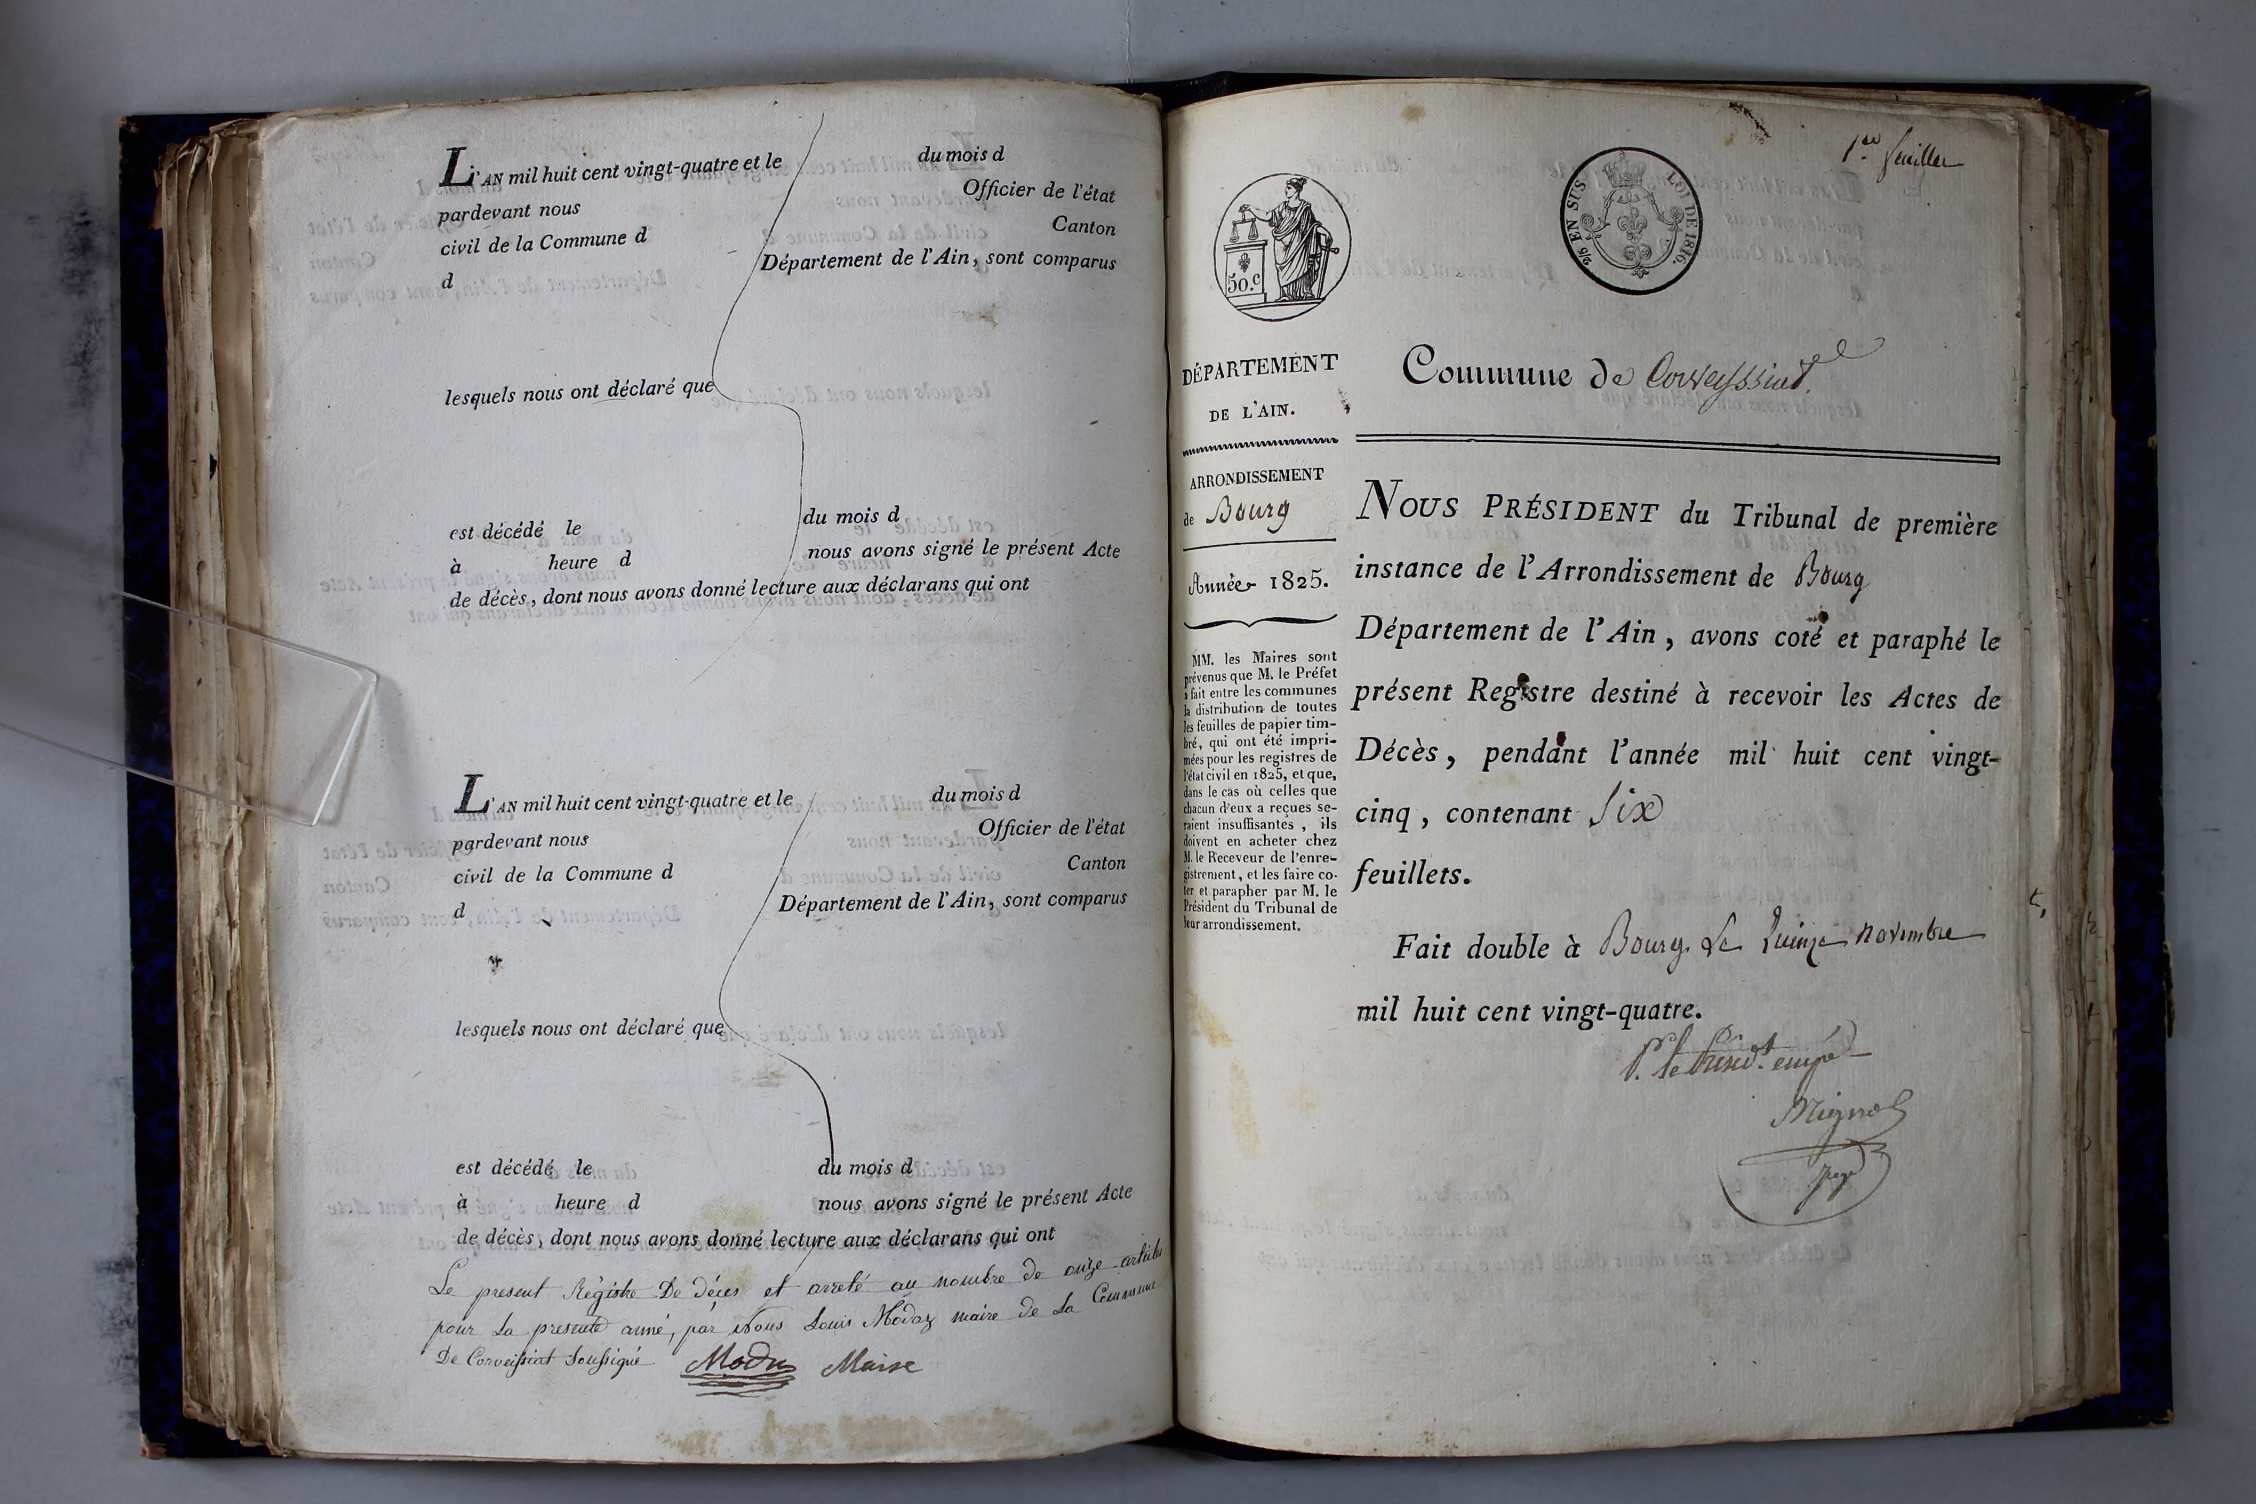 L'AN mil huit cent vingt-quatre et le du mois d
pardevant nous Officier de l'état
civil de la Commune d Canton
d Département de l'Ain, sont comparus
lesquels nous ont déclaré que
est décédé le du mois d
à heure d nous avons signé le présent Acte
de décès, dont nous avons donné lecture aux déclarans qui ont
L'AN mil huit cent vingt-quatre et le du mois d
pardevant nous Officier de l'état
civil de la Commune d Canton
d Département de l'Ain, sont comparus
lesquels nous ont déclaré que
est décédé le du mois d
à heure d nous avons signé le présent Acte
de décès, dont nous avons donné lecture aux déclarans qui ont
Le present Régistre De déces et arreté au nombre de onze articles
pour La presente anné, par Nous Louis Moday maire de La Commune
De Corveissiat Soussigné Maire
1.er feuillet
50.c
2/5 EN SUS LOI DE 1816.
DÉPARTEMENT
DE L'AIN.
ARRONDISSEMENT
de Bourg
Année 1825.
MM. les Maires sont
prévenus que M. le Préfet
a fait entre les communes
la distribution de toutes
les feuilles de papier tim-
bré, qui ont été impri-
mées pour les registres de
l'état civil en 1825, et que,
dans le cas où celles que
chacun d'eux a reçues se-
raient insuffisantes, ils
doivent en acheter chez
M. le Receveur de l'enre-
gistrement, et les faire co-
ter et parapher par M. le
Président du Tribunal de
leur arrondissement.
Commune de Corveyssiat
NOUS PRÉSIDENT du Tribunal de première
instance de l'Arrondissement de Bourg
Département de l'Ain, avons coté et paraphé le
présent Registre destiné à recevoir les Actes de
Décès, pendant l'année mil huit cent vingt-
cinq, contenant Six
feuillets.
Fait double à Bourg Le Quinze novembre
mil huit cent vingt-quatre.
P. le Présid.t empé